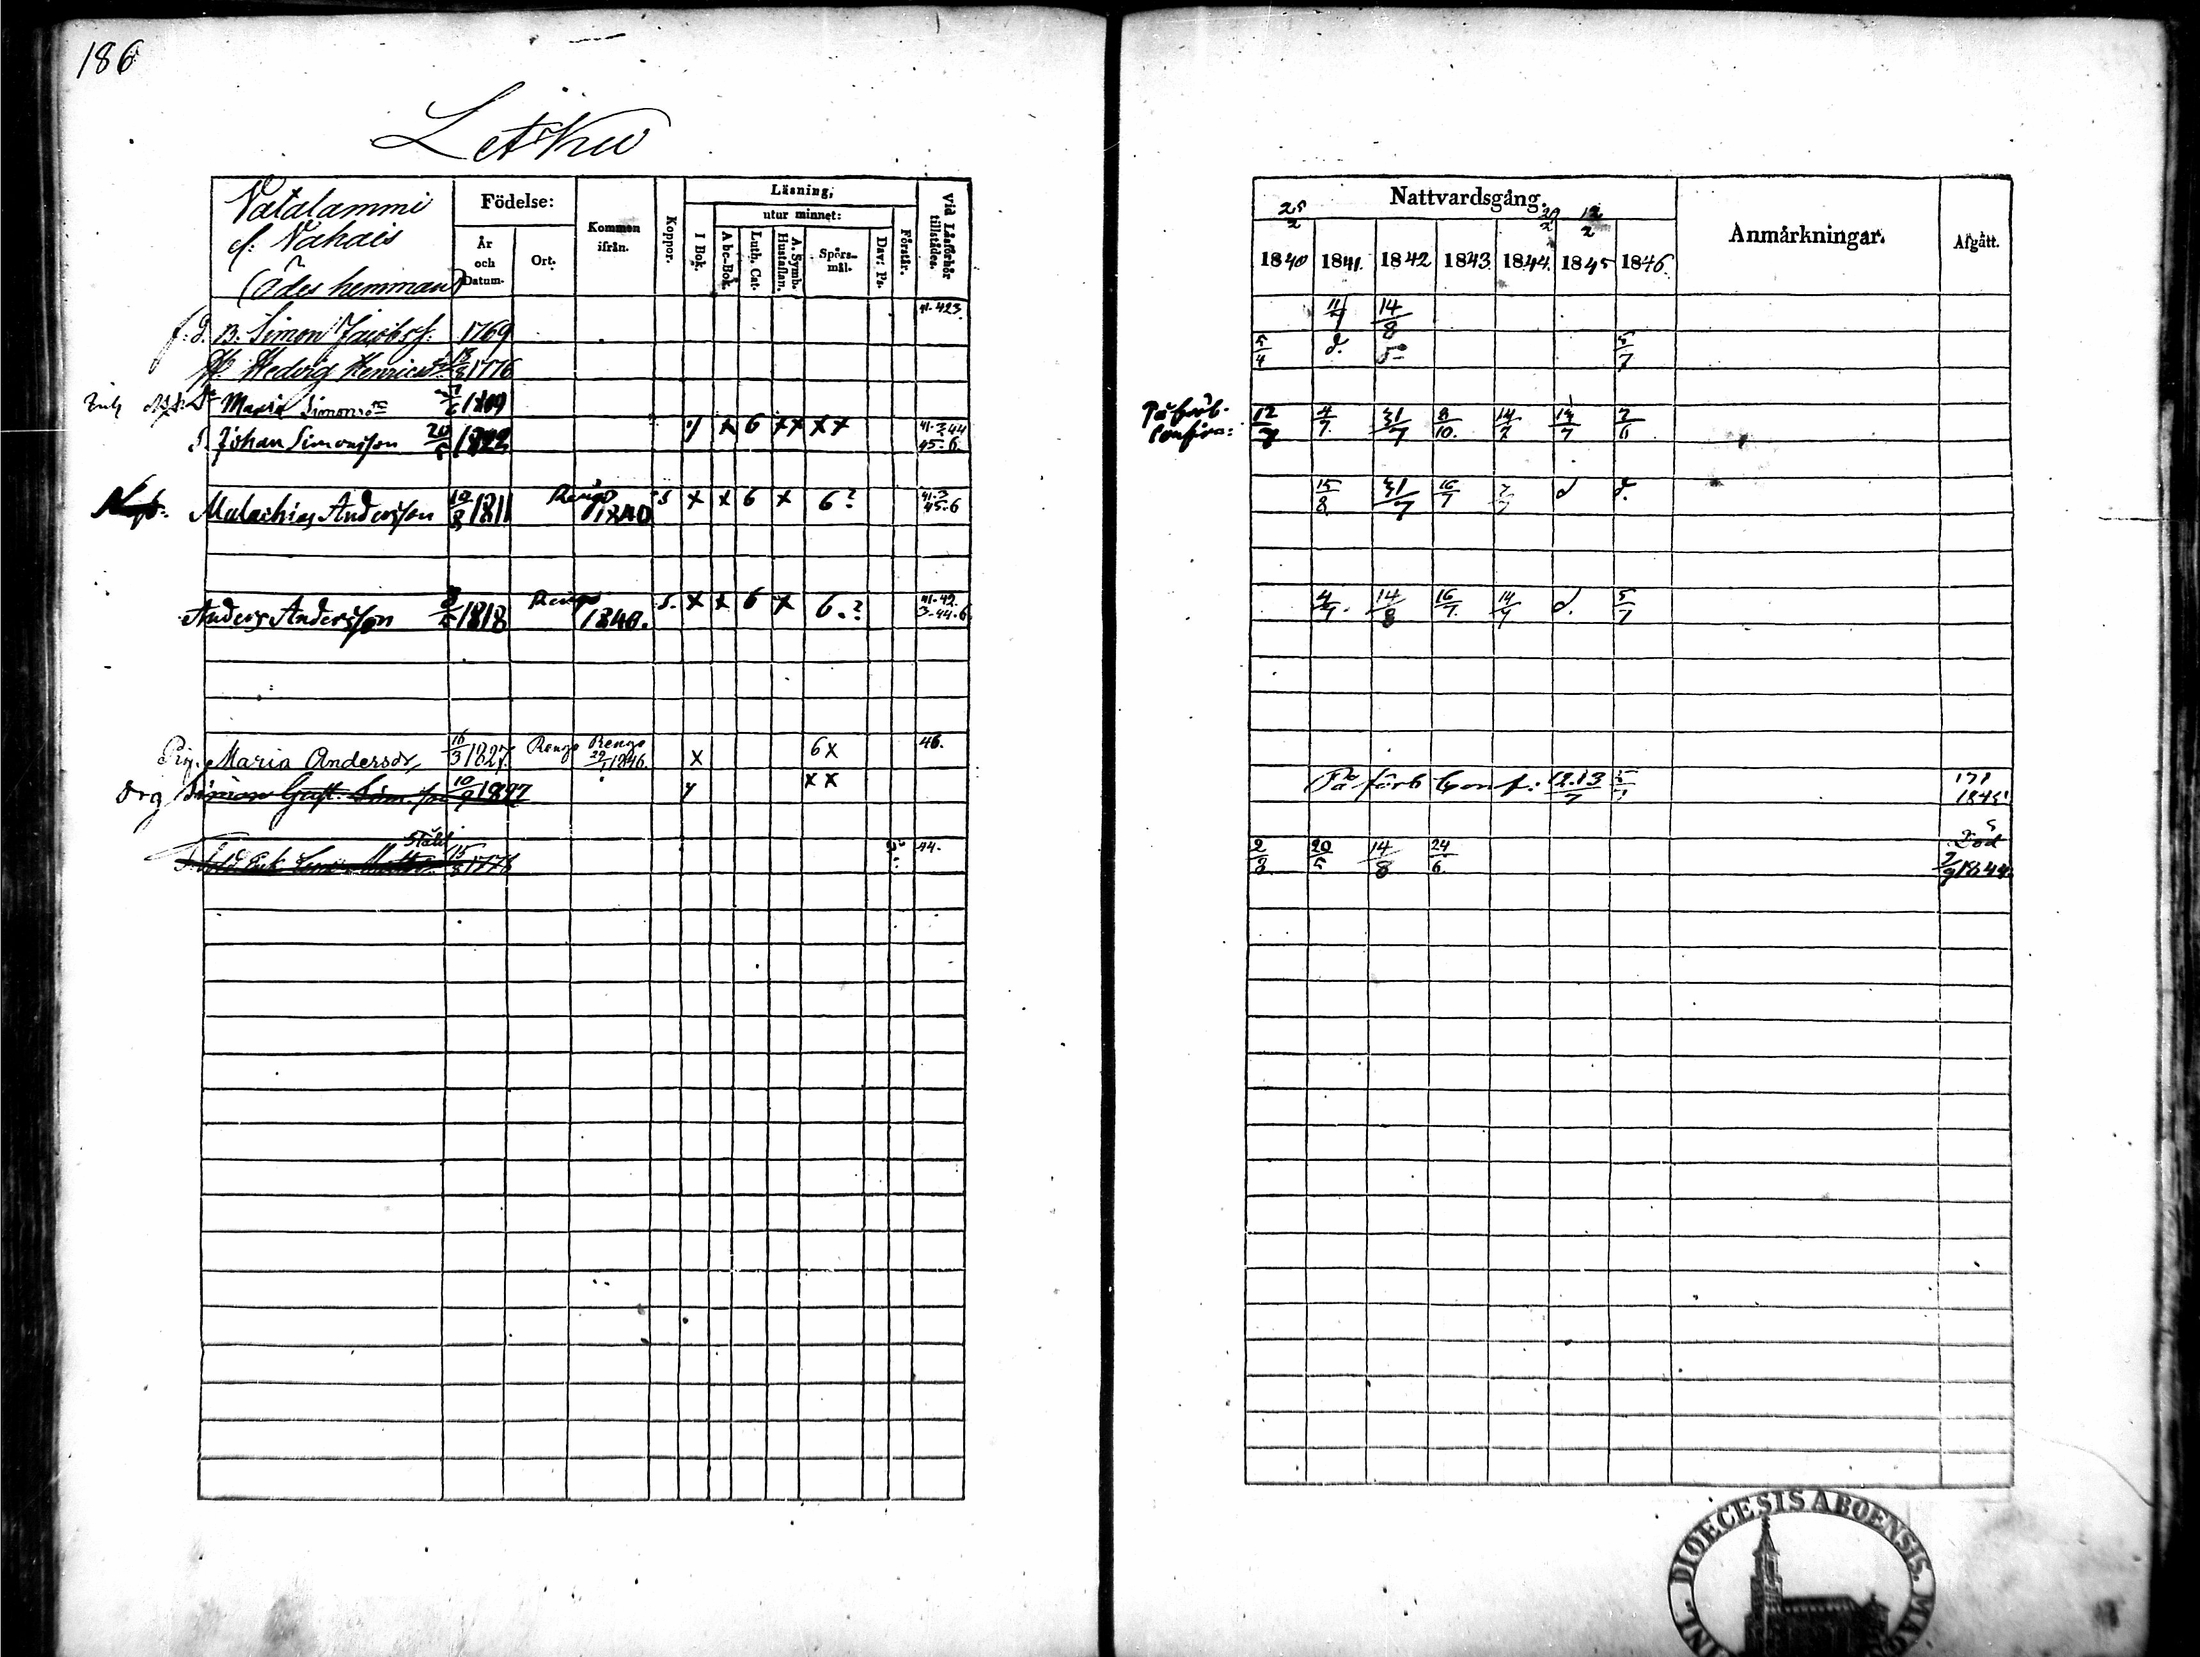 186
Letku
Vatalammi
el. Vahais
(Ödes hemman)
Födelse:
År
och
Datum.
Ort.
Kommen
ifrån.
Koppor.
Läsning,
I Bok.
utur minnet:
Abc-Bok.
Luth. Cat.
A. Symb.
Hustaflan.
Spörs-
mål.
Dav: Ps.
Förstår.
Vid Läsförhör
tillstädes.
f.d. B. Simon Jacobss: 1769 41.423.
H. Hedvig Henricsdr 1776
Dr Maria Simonsdr 1809
S. Johan Simonsson 20 1822 y x 6 xx xx 41.3.44
45.6.
Malachias Andersson 19/8 1811 Rengo 1840 s x x 6 x 6? 41.3
45.6
Anders Andersson 1818 Rengo 1840. s. x x 6 x 6.? 41.42.
3.44.6
Pig. Maria Andersdr 16/3 1827. Rengo Rengo 1846. x 6x 46.
Drg Simon Gust. Sim.son 10/9 1827 y xx
15/8 1778 44.
Nattvardsgång.
25/2 12/2
1840 1841. 1842 1843 1844. 1845 1846.
Anmärkningar.
Afgått.
14/8
5/4 d. 5/7
På förb.
Confirm:
12/7 4/7 31/7 8/10. 14/7 13/7 7/6
15/8 31/7 16/7 d d.
4/7. 14/8 16/7. 14/7 d. 5/7
På förb Conf: 12.13/7 5/7 171
1845
2/8 20/5 14/8 24/6 Död
1844
DIOECESIS ABOENSIS.